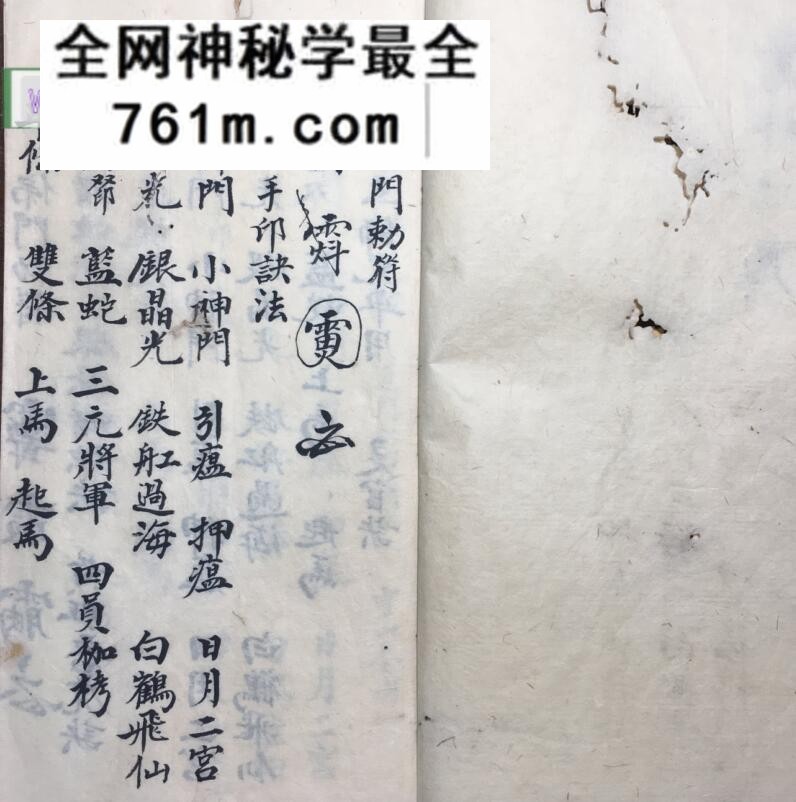 全网神秘学最全
761m.com
門勅符
手印訣法
門 小神門 引瘟 押瘟 日月二宮
光 銀晶光 鉄舡過海 白鶴飛仙
藍蛇 三元將軍 四員枷栲
雙條 上馬 起馬